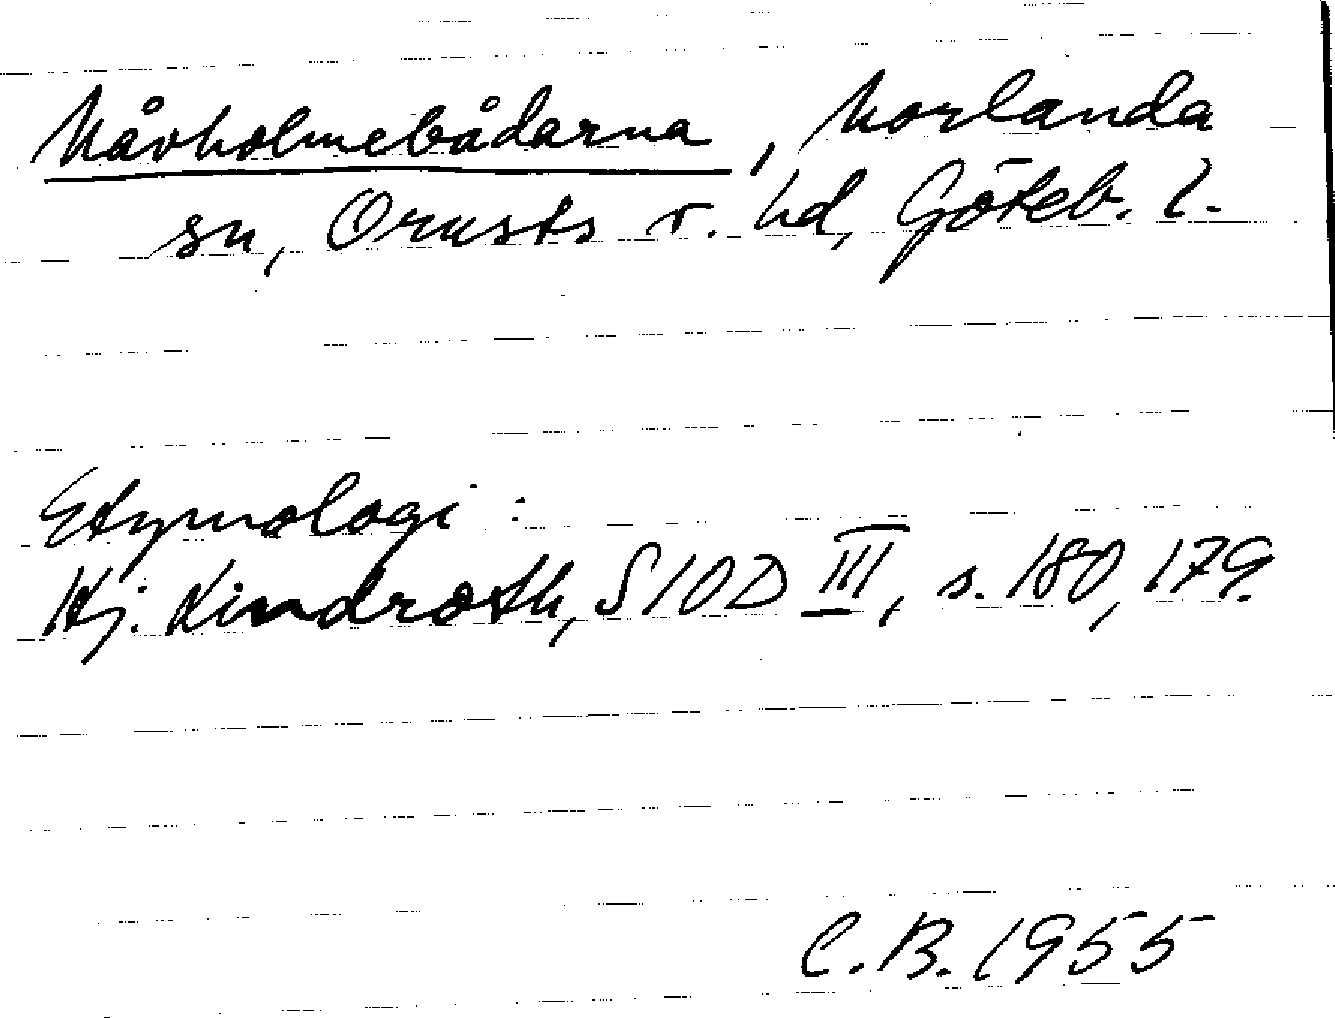 Måvholmebådarna, Morlanda
sn, Orusts v. hd, Göteb. l.
Etymologi:
Hj. Lindroth, SIOD III, s. 180, 179.
C.B. 1955